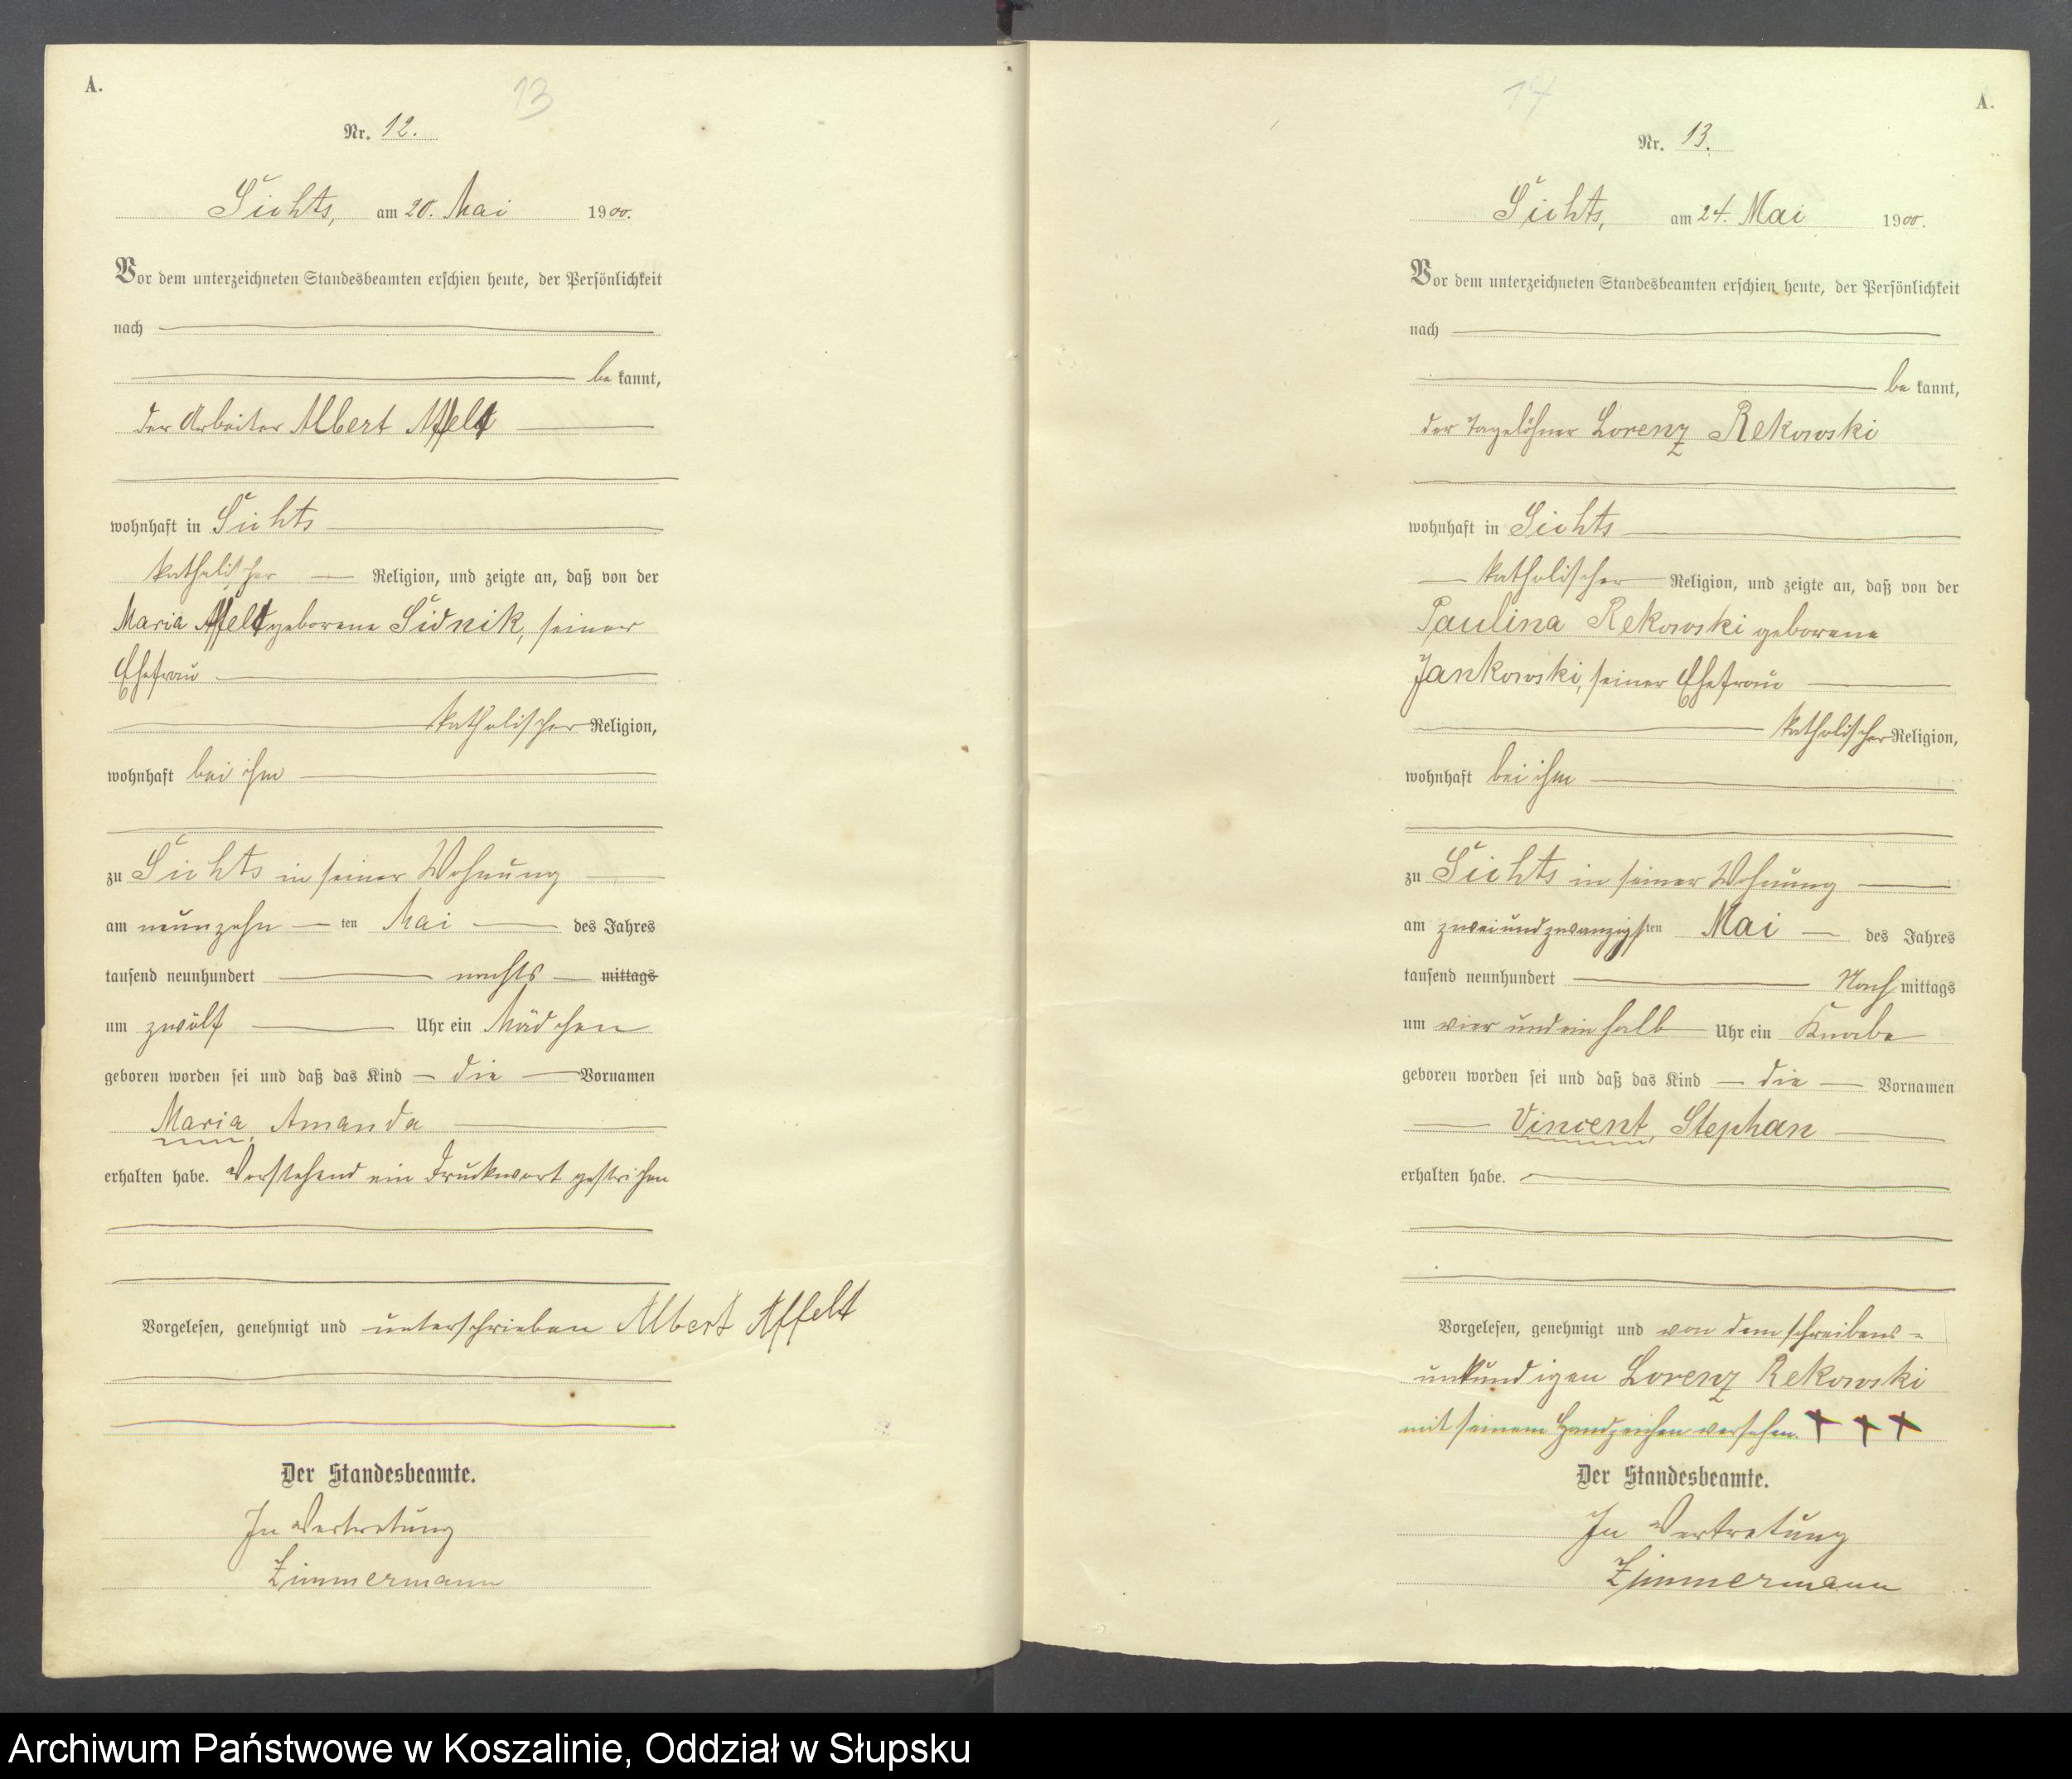 A.
13
Nr. 12.
Sichts, am 20. Mai 1900.
Vor dem unterzeichneten Standesbeamten erschien heute, der Persönlichkeit
nach
be kannt,
der Arbeiter Albert Affelt
wohnhaft in Sichts
katholischer Religion, und zeigte an, daß von der
Maria Affelt geborene Sidnik, seiner
Ehefrau
katholischer Religion,
wohnhaft bei ihm
zu Sichts in seiner Wohnung
am neunzehn ten Mai des Jahres
tausend neunhundert nachts mittags
um zwölf Uhr ein Mädchen
geboren worden sei und daß das Kind die Vornamen
Maria, Amanda
erhalten habe. Vorstehend ein Druckwort gestrichen
Vorgelesen, genehmigt und unterschrieben Albert Affelt
Der Standesbeamte.
In Vertretung
Zimmermann
14
A.
Nr. 13.
Sichts, am 24. Mai 1900.
Vor dem unterzeichneten Standesbeamten erschien heute, der Persönlichkeit
nach
be kannt,
der Tagelöhner Lorenz Rekowski
wohnhaft in Sichts
katholischer Religion, und zeigte an, daß von der
Paulina Rekowski geborene
Jankowski, seiner Ehefrau
katholischer Religion,
wohnhaft bei ihm
zu Sichts in seiner Wohnung
am zweiundzwanzigsten Mai des Jahres
tausend neunhundert Nach mittags
um vier und ein halb Uhr ein Knabe
geboren worden sei und daß das Kind die Vornamen
Vincent, Stephan
erhalten habe.
Vorgelesen, genehmigt und von dem schreibens-
unkundigen Lorenz Rekowski
mit seinem Handzeichen versehen. + + +
Der Standesbeamte.
In Vertretung
Zimmermann
Archiwum Państwowe w Koszalinie, Oddział w Słupsku